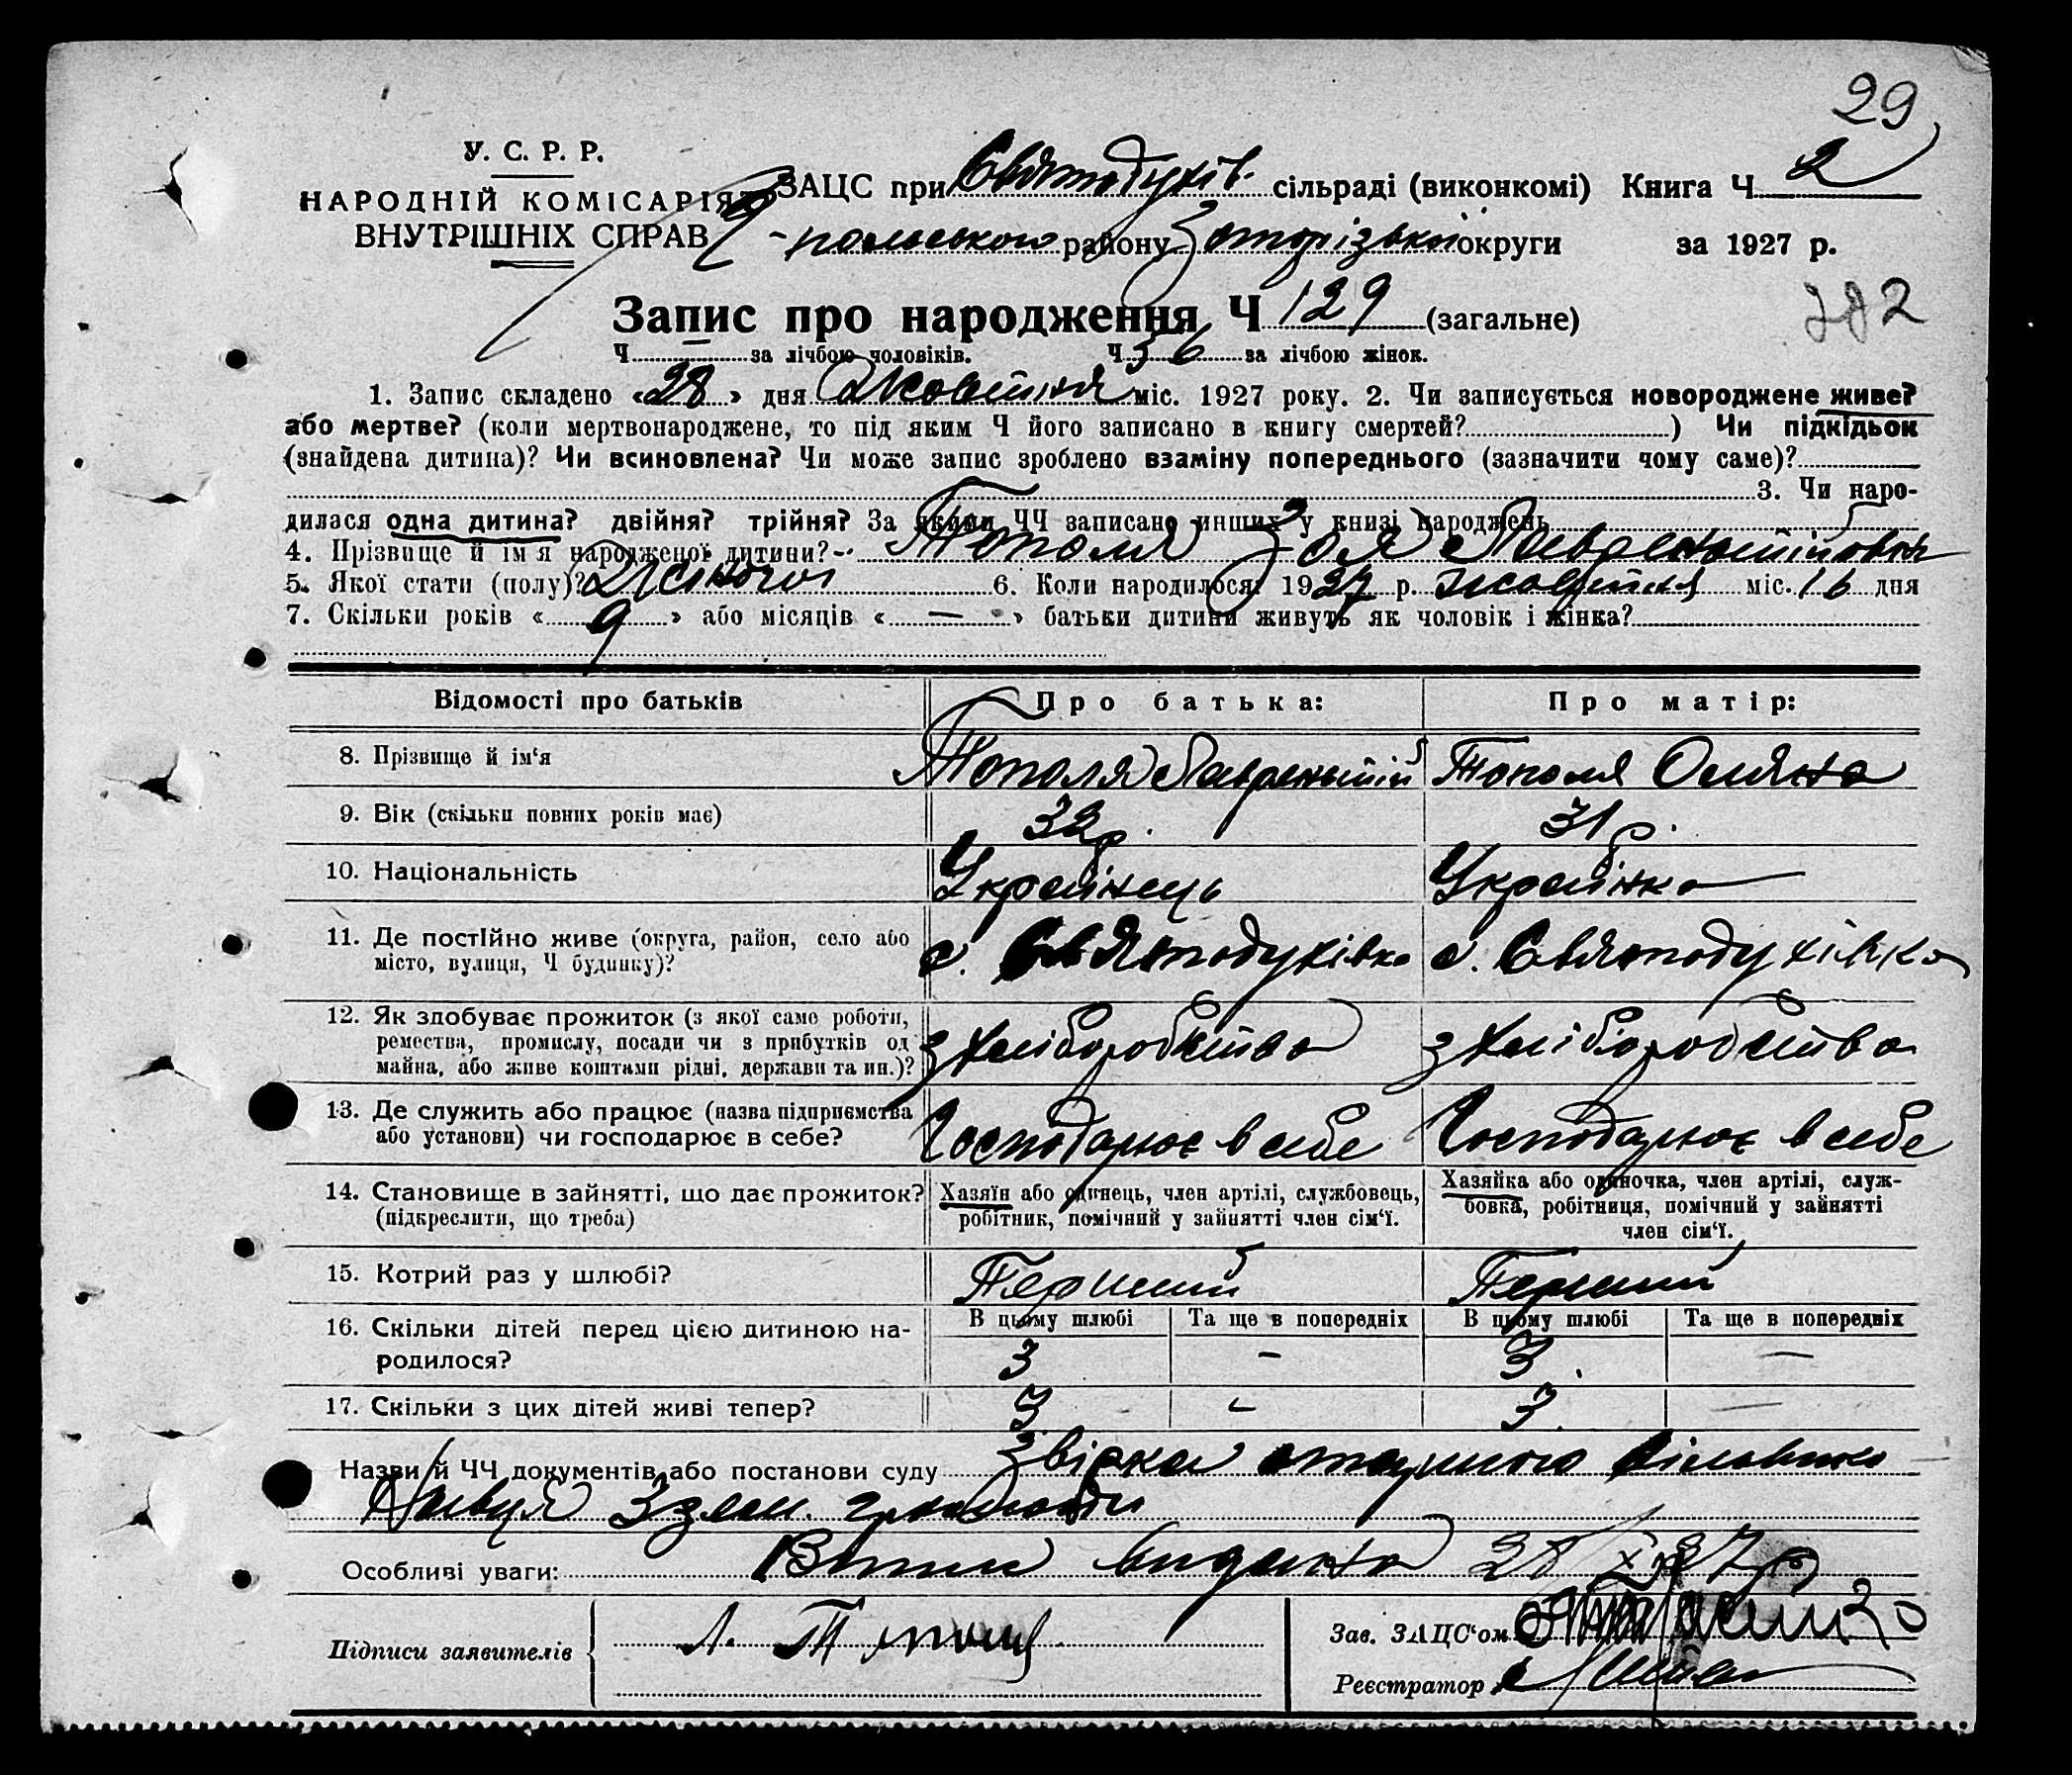 29
У. С. Р. Р.
НАРОДНІЙ КОМІСАРІЯТ
ВНУТРІШНІХ СПРАВ
ЗАЦС при Святодухів. сільраді (виконкомі) Книга Ч 2
-польського району Запорізької округи за 1927 р.
Запис про народження Ч 129 (загальне)
Ч — за лічбою чоловіків. Ч 56 за лічбою жінок.
1. Запис складено «28» дня Жовтня міс. 1927 року. 2. Чи записується новороджене живе?
або мертве? (коли мертвонароджене, то під яким Ч його записано в книгу смертей? ) Чи підкідьок
(знайдена дитина)? Чи всиновлена? Чи може запис зроблено взаміну попереднього (зазначити чому саме)?
3. Чи наро-
дилася одна дитина? двійня? трійня? За якими ЧЧ записано инших у книзі народжень
4. Прізвище й ім'я народженої дитини? Тополя Зоя Лаврентіївна
5. Якої стати (полу)? Жіночої 6. Коли народилося: 1927 р. жовтня міс. 16 дня
7. Скільки років « 9 » або місяців « — » батьки дитини живуть як чоловік і жінка?
Відомості про батьків Про батька: Про матір:
8. Прізвище й ім'я Тополя Лаврентій Тополя Оляна
9. Вік (скільки повних років має) 32 р. 31 р.
10. Національність Українець Українка
11. Де постійно живе (округа, район, село або
місто, вулиця, Ч будинку)? с. Святодухівка с. Святодухівка
12. Як здобуває прожиток (з якої само роботи,
ремества, промислу, посади чи з прибутків од
майна, або живе коштами рідні, держави та ин.)? з хліборобства з хліборобства
13. Де служить або працює (назва підприємства
або установи) чи господарює в себе? Господарює в себе Господарює в себе
14. Становище в зайнятті, що дає прожиток?
(підкреслити, що треба)
Хазяїн або одинець, член артілі, службовець,
робітник, помічний у зайнятті член сім'ї.
Хазяйка або одиночка, член артілі, служ-
бовка, робітниця, помічний у зайнятті
член сім'ї.
15. Котрий раз у шлюбі? Перший Перший
В цьому шлюбі Та ще в попередніх В цьому шлюбі Та ще в попередніх
16. Скільки дітей перед цією дитиною на-
родилося? 3 – 3 —
17. Скільки з цих дітей живі тепер? 3 – 3 —
Назви й ЧЧ документів або постанови суду
громади
Особливі уваги: видана 28/X 27 р
Підписи заявителів Л. Тополя
Зав. ЗАЦС'ом
Реєстратор